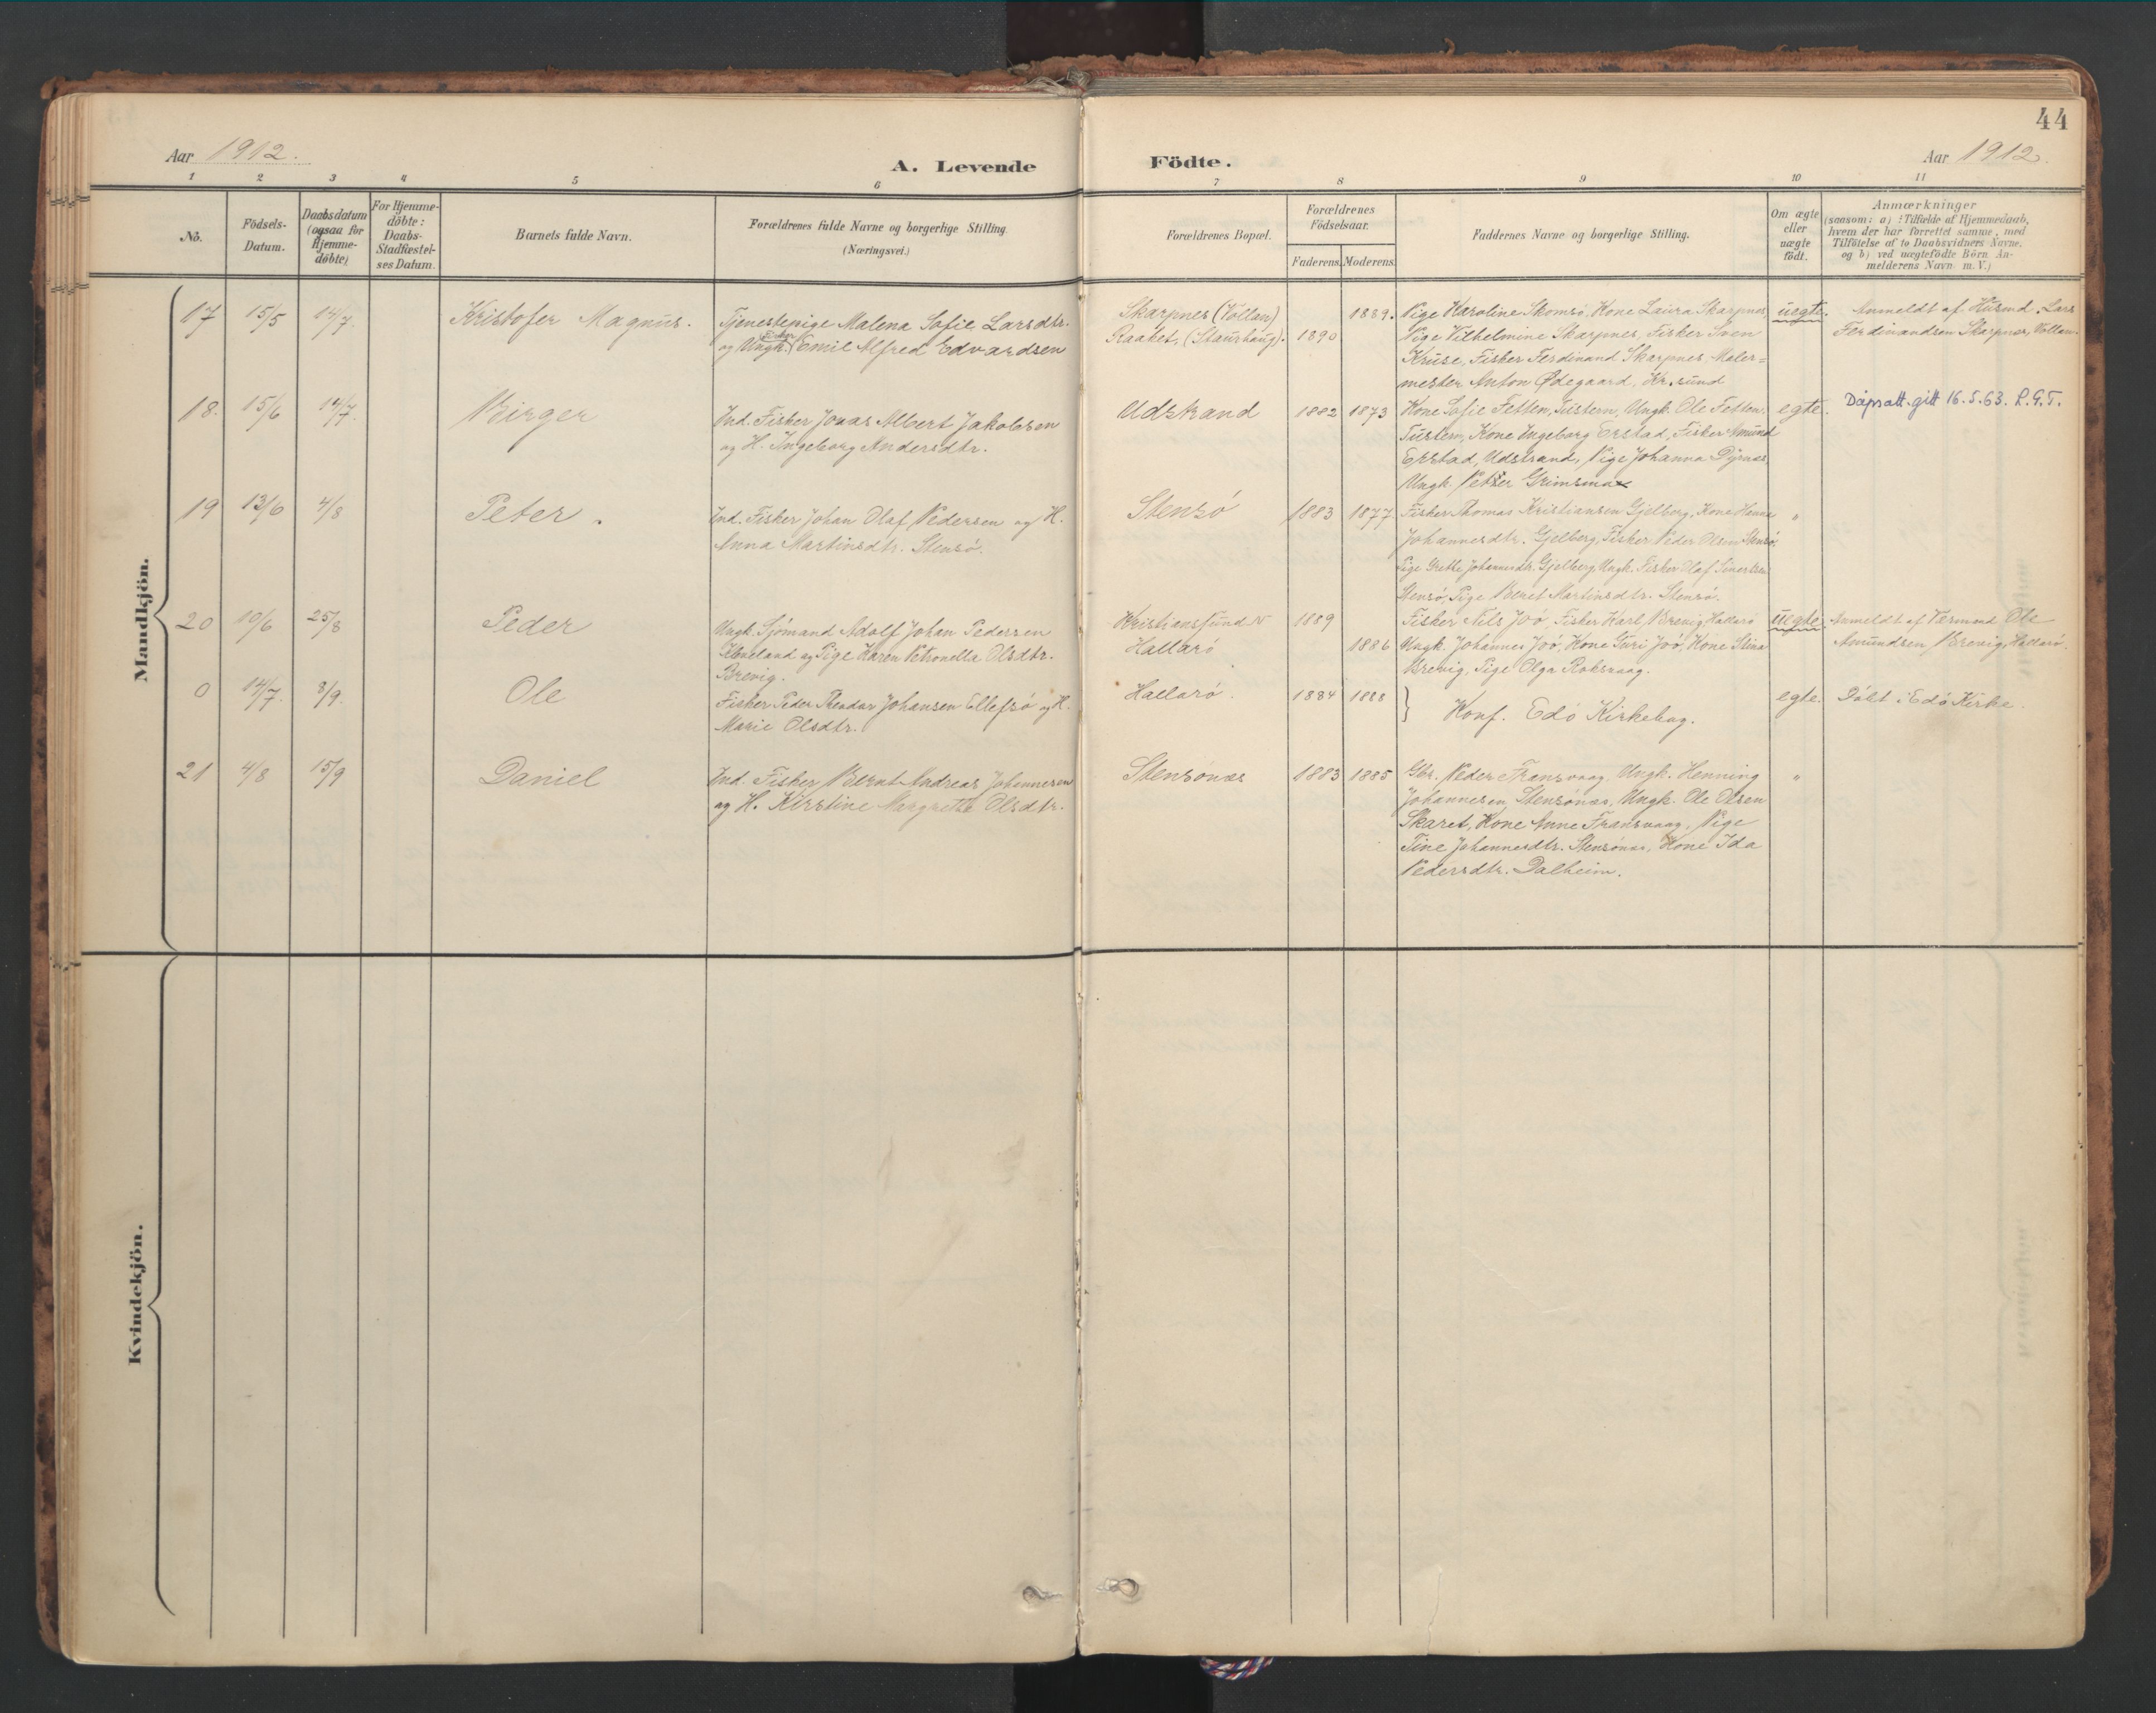 44
Aar 1912.
A. Levende Födte.
Aar 1912.
1 2 3 4 5 6 7 8 9 10 11
No.
Födsels-
Datum.
Daabsdatum
(ogsaa for
Hjemme-
döbte)
For Hjemme-
döbte:
Daabs-
Stadfæstel-
ses Datum.
Barnets fulde Navn.
Forældrenes fulde Navne og borgerlige Stilling.
(Næringsvei.)
Forældrenes Bopæl.
Forældrenes
Födselsaar.
Faderens. Moderens.
Faddernes Navne og borgerlige Stilling.
Om ægte
eller
uægte
födt.
Anmærkninger
(saasom: a) i Tilfælde af Hjemmedaab,
hvem der har forrettet samme, med
Tilföielse af to Daabsvidners Navne.
og b) ved uægtefödte Börn An-
melderens Navn m. V.)
Mandkjön.
17 15/5 14/7. Kristofer Magnus.
Tjenestepige Malena Sofie Larsdtr.
og Ungk. Fisker Emil Alfred Edvardsen
Skarpnes (Vollan)
Raaket, (Staurhaug).
1890 1889.
Pige Karoline Skomsö, Kone Laura Skarpnes,
Pige Vilhelmine Skarpnes, Fisker Sven
Kruse, Fisker Ferdinand Skarpnes, Maler=
mester Anton Ødegaard, Kr.sund
uegte.
Anmeldt af Husmd. Lars
Ferdinandsen Skarpnes, Vollan.
18. 15/6 14/7. Birger
Ind. Fisker Jonas Albert Jakobsen
og H. Ingeborg Andersdtr.
Udstrand 1882 1873
Kone Sofie Fetten, Tustern, Ungk. Ole Fetten,
Tustern, Kone Ingeborg Erstad, Fisker Amund
Erstad, Udstrand, Pige Johanna Dyrnes,
Ungk. Petter Grimsmo
egte.
Dåpsatt. gitt 16.5.63. P.G.T.
19 13/6 4/8 Peter.
Ind. Fisker Johan Olaf Pedersen og H.
Anna Martinsdtr. Stensö.
Stensö 1883 1877
Fisker Thomas Kristiansen Gjelberg, Kone Hanna
Johannesdtr. Gjelberg, Fisker Peder Olsen Stensö,
Pige Grethe Johannesdtr. Gjelberg, Ungk. Fisker Olaf Sivertsen
Stensö, Pige Beret Martinsdtr. Stensö.
"
20 10/6 25/8 Peder
Ungk. Sjömand Adolf Johan Pedersen
Kleveland og Pige Karen Petronella Olsdtr.
Brevig.
Kristiansund N 1889
Hallarö 1886
Fisker Nils Joö, Fisker Karl Brevig, Hallarö
Ungk. Johannes Joö, Kone Guri Joö, Kone Stina
Brevig, Pige Olga Roksvaag.
uegte.
Anmeldt af Fermand Ole
Amundsen Brevig, Hallarö.
0 14/7. 8/9. Ole
Fisker Peder Theodor Johansen Ellefsö og H.
Marie Olsdtr.
Hallarö. 1884 1888
Konf. Edö Kirkebog.
egte.
Döbt i Edö Kirke.
21 4/8 15/9 Daniel
Ind. Fisker Bernt Andreas Johannesen
og H. Kirstine Margrethe Olsdtr.
Stensönes 1883 1885
Gbr. Peder Fransvaag, Ungk. Henning
Johannesen, Stensönes, Ungk. Ole Olsen
Skaret, Kone Anne Fransvaag, Pige
Tine Johannesdtr. Stensönes, Kone Ida
Pedersdtr. Dalheim.
"
Kvindekjön.